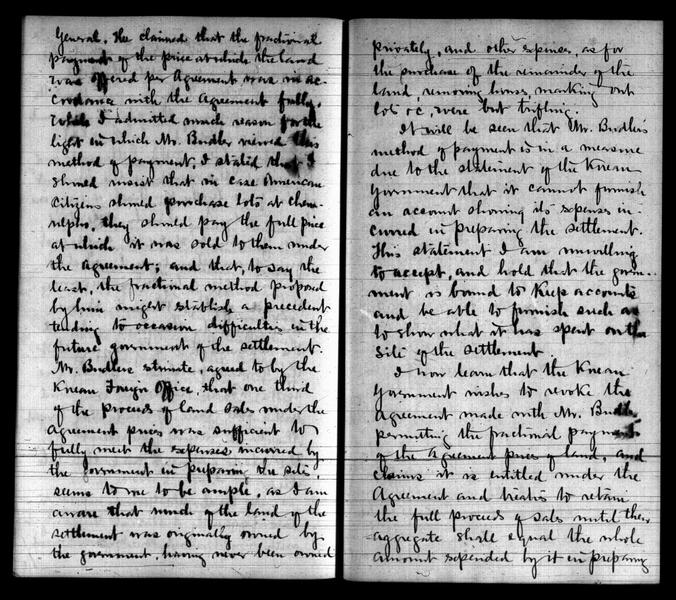 General. He claimed that the fractional
payment of the price at which the land
was offered per Agreement was in ac-
cordance with the Agreement fully.
While I admitted much reason for the
light in which Mr. Budler viewed this
method of payment, I stated that I
should insist that in case American
Citizens should purchase lots at Chem-
ulpho, they should pay the full price
at which it was sold to them under
the Agreement; and that, to say the
least, the fractional method proposed
by him might establish a precedent
tending to occasion difficulties in the
future government of the settlement.
Mr. Budlers estimate, agreed to by the
Korean Foreign Office, that one third
of the proceeds of land sales under the
Agreement prices was sufficient to
fully meet the expenses incurred by
the Government in preparing the site,
seems to me to be ample, as I am
aware that much of the land of the
settlement was originally owned by
the government, having never been owned
privately, and other expenses, as for
the purchase of the remainder of the
land, removing houses, marking out
lots &c, were but trifling.
It will be seen that Mr. Budler's
method of payment is in a measure
due to the statement of the Korean
Government that it cannot furnish
an account showing its expenses in-
curred in preparing the settlement.
This statement I am unwilling
to accept, and hold that the govern-
ment is bound to keep accounts
and be able to furnish such as
to show what it has spent on the
site of the settlement.
I now learn that the Korean
Government wishes to revoke the
Agreement made with Mr. Budler
permitting the fractional payment
of the Agreement price of land, and
claims it is entitled under the
Agreement and treaties to retain
the full proceeds of sales until their
aggregate shall equal the whole
amount expended by it in preparing